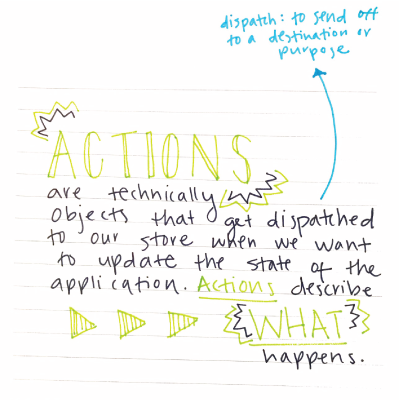 dispatch: to send off
to a destination or
purpose
ACTIONS
are technically
objects that get dispatched
to our store when we want
to update the state of the
application. Actions describe
WHAT
happens.